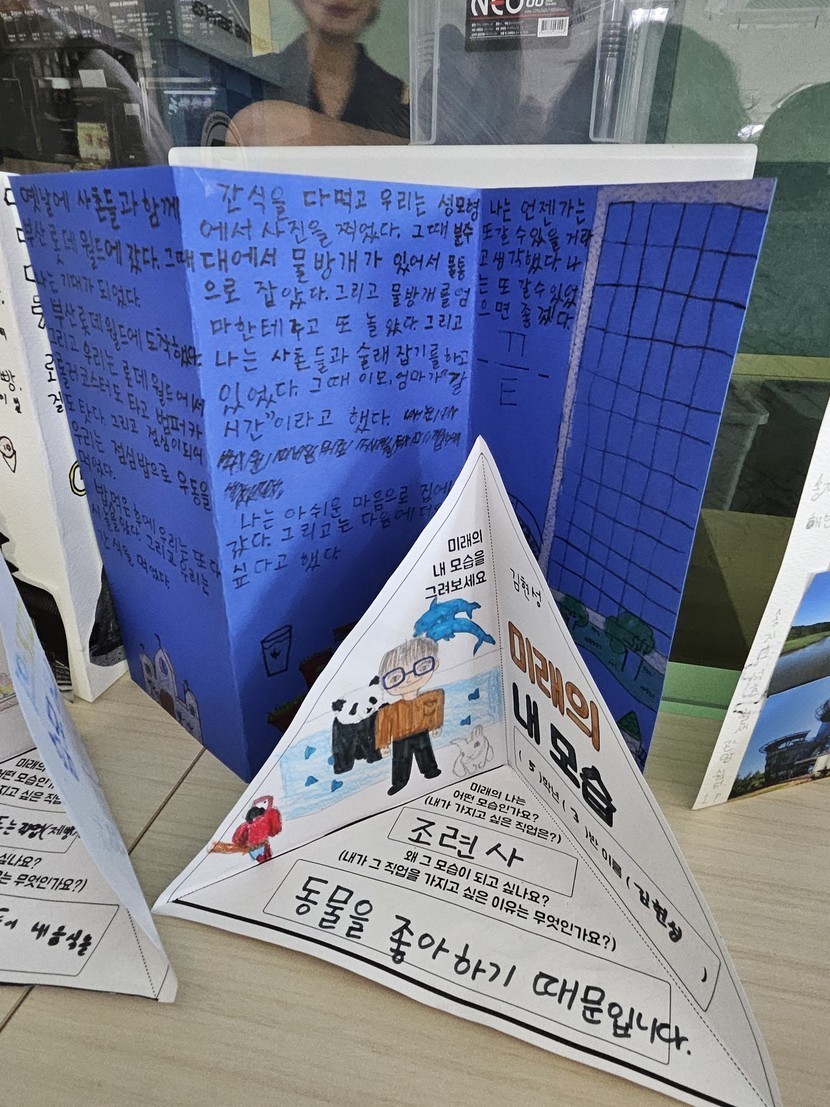 NEO
옛날에 사촌들과 함께
부산 롯데 월드에 갔다. 그때
나는 기대가 되었다.
부산 롯데월드에 도착했다.
그리고 우리는 롯데 월드에서
롤러코스터도 타고 범퍼카
도 탔다. 그리고 점심이 되어
우리는 점심밥으로 우동을
먹었다.
밥 먹은 후에 우리는 또 다
시 놀았다. 그리고 우리는
간식을 먹었다.
간식을 다먹고 우리는 성모형
에서 사진을 찍었다. 그때 분수
대에서 물방개가 있어서 물통
으로 잡았다. 그리고 물방개를 엄
마한테 주고 또 놀았다. 그리고
나는 사촌들과 술래 잡기를 하고
있었다. 그때 이모, 엄마가 "갈
시간"이라고 했다.
나는 아쉬운 마음으로 집에
갔다. 그리고는 다음에 더
싶다고 했다
나는 언젠가는
또갈 수 있을 거라
고 생각했다. 나
는 또 갈수 있었
으면 좋겠다.
-끝-
미래의
내 모습을
그려보세요
김현성
미래의
내 모습
( 5 )학년 ( 3 )반 이름 ( 김현성 )
미래의 나는
어떤 모습인가요?
(내가 가지고 싶은 직업은?)
조련사
왜 그 모습이 되고 싶나요?
(내가 그 직업을 가지고 싶은 이유는 무엇인가요?)
동물을 좋아하기 때문입니다.
미래의
어떤 모습인
(내가 가지고 싶은 직업
싶나요?
무엇인가요?)
내 음식을